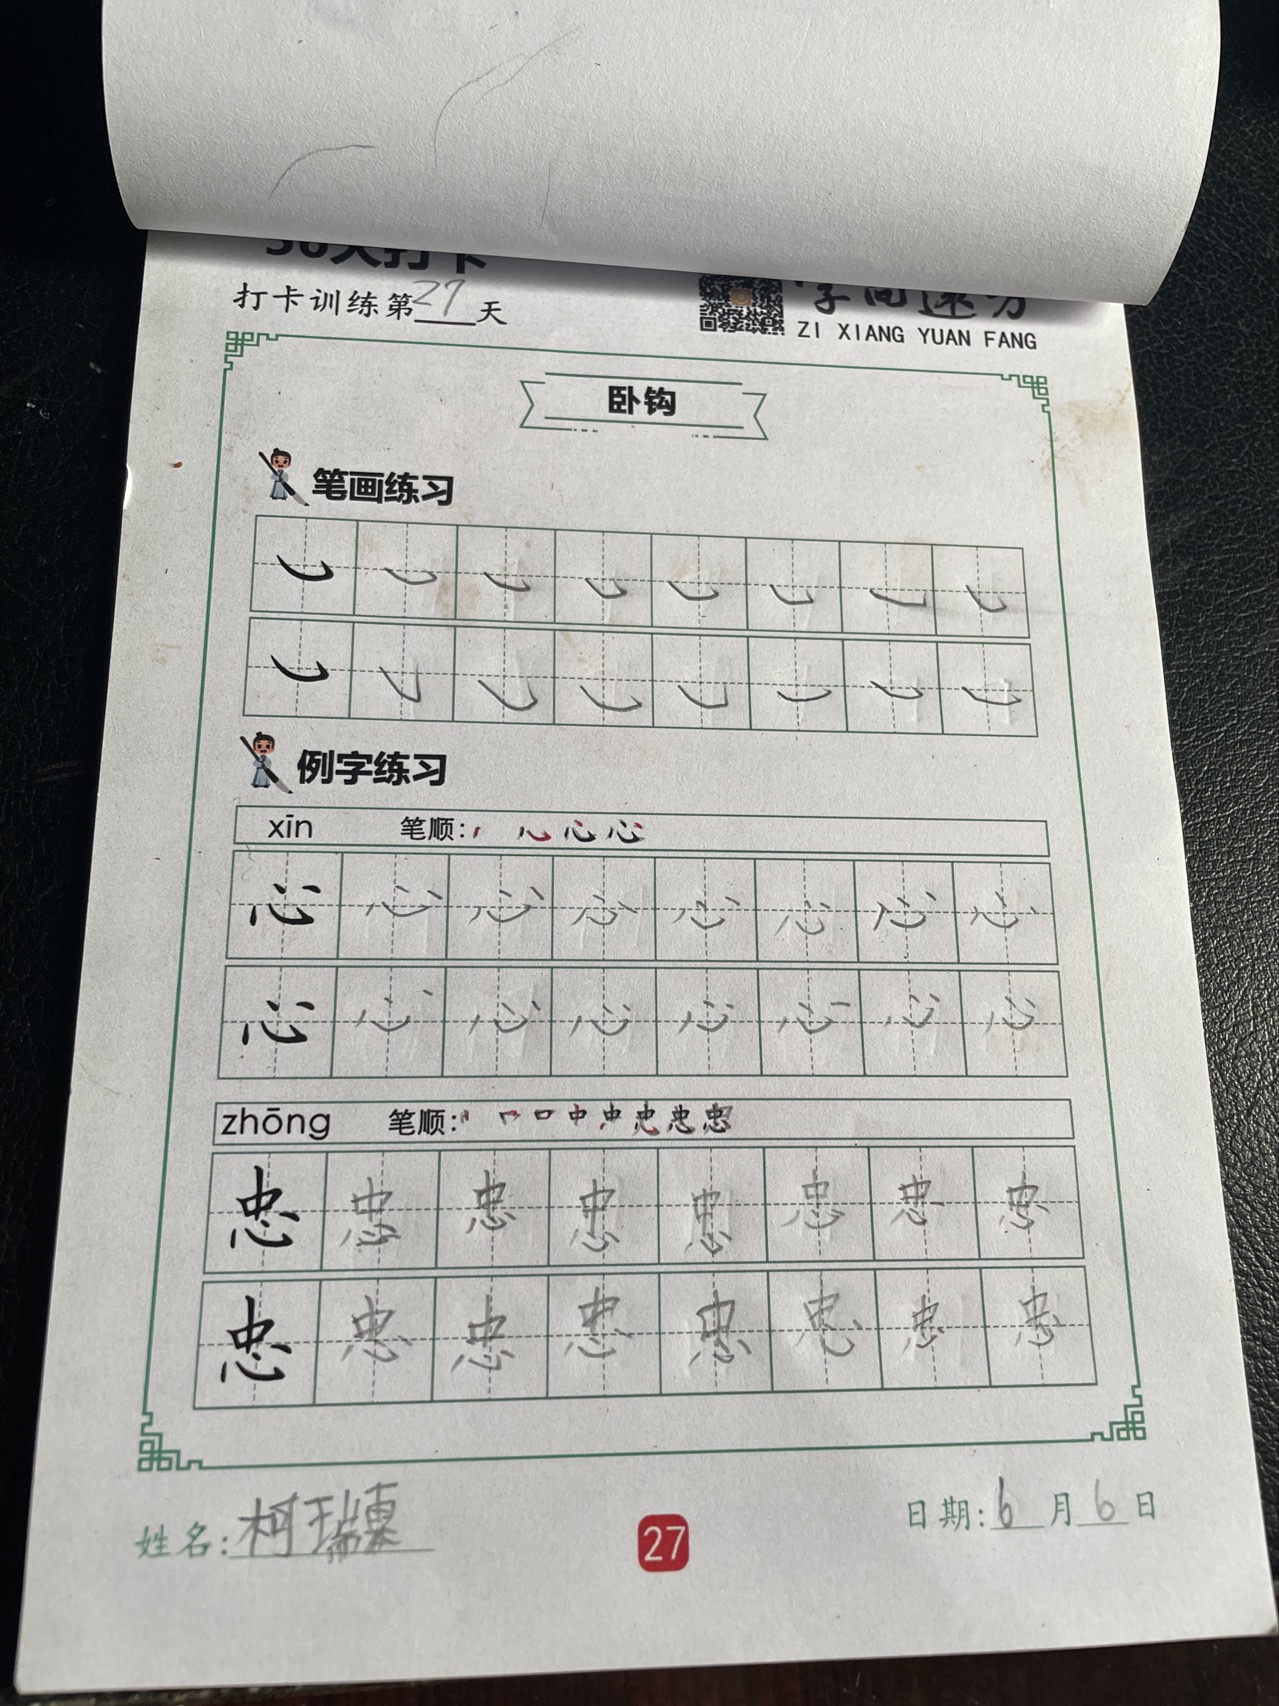 打卡训练第27天
ZI XIANG YUAN FANG
卧钩
笔画练习
例字练习
xīn 笔顺:
心 心 心 心 心 心 心 心
心 心 心 心 心 心 心 心
zhōng 笔顺:
忠 忠 忠 忠 忠 忠 忠 忠
忠 忠 忠 忠 忠 忠 忠 忠
姓名:柯瑞
日期:6月6日
27